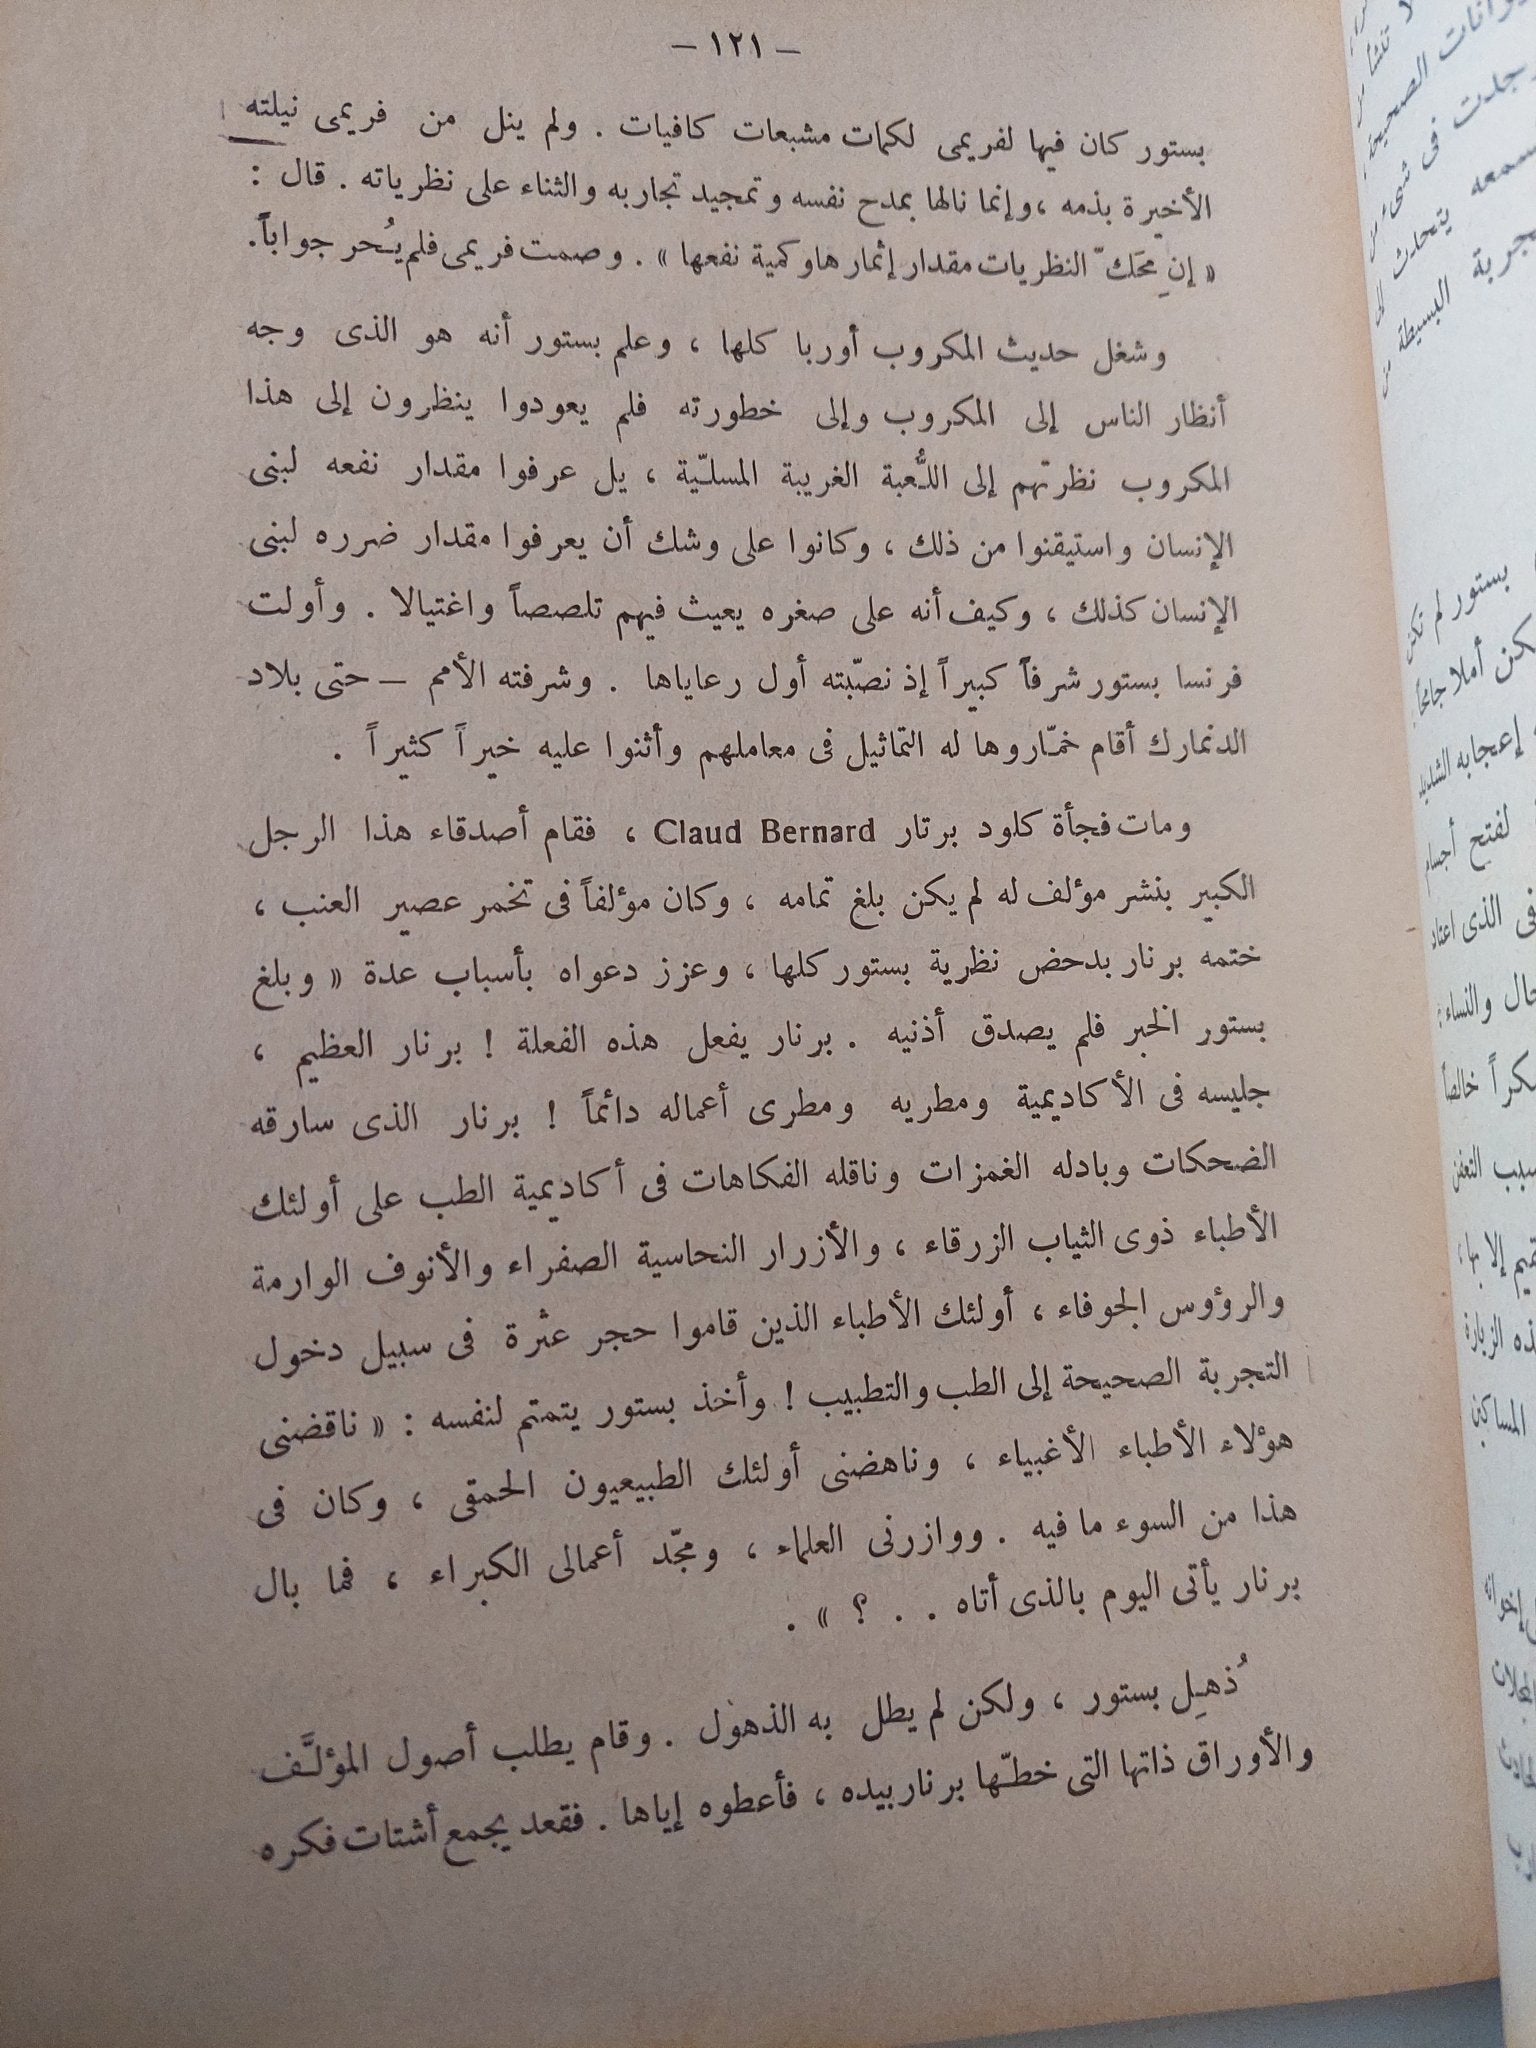 — ١٢١ —
بستور كان فيها لفريمى لكمات مشبعات كافيات . ولم ينل من فريمى نيلته
الأخيرة بذمه ، وإنما نالها بمدح نفسه وتمجيد تجاربه والثناء على نظرياته . قال :
« إن مِحَكّ النظريات مقدار إثمارها وكمية نفعها » . وصمت فريمى فلم يُحر جواباً .
وشغل حديث المكروب أوربا كلها ، وعلم بستور أنه هو الذى وجه
أنظار الناس إلى المكروب وإلى خطورته فلم يعودوا ينظرون إلى هذا
المكروب نظرتهم إلى اللُّعبة الغريبة المسلّية ، يل عرفوا مقدار نفعه لبنى
الإنسان واستيقنوا من ذلك ، وكانوا على وشك أن يعرفوا مقدار ضرره لبنى
الإنسان كذلك ، وكيف أنه على صغره يعيث فيهم تلصصاً واغتيالا . وأولت
فرنسا بستور شرفاً كبيراً إذ نصّبته أول رعاياها . وشرفته الأمم — حتى بلاد
الدنمارك أقام خمّاروها له التماثيل فى معاملهم وأثنوا عليه خيراً كثيراً .
ومات فجأة كلود برتار Claud Bernard ، فقام أصدقاء هذا الرجل
الكبير بنشر مؤلف له لم يكن بلغ تمامه ، وكان مؤلفاً فى تخمر عصير العنب ،
ختمه برنار بدحض نظرية بستور كلها ، وعزز دعواه بأسباب عدة « وبلغ
بستور الخبر فلم يصدق أذنيه . برنار يفعل هذه الفعلة ! برنار العظيم ،
جليسه فى الأكاديمية ومطريه ومطرى أعماله دائماً ! برنار الذى سارقه
الضحكات وبادله الغمزات وناقله الفكاهات فى أكاديمية الطب على أولئك
الأطباء ذوى الثياب الزرقاء ، والأزرار النحاسية الصفراء والأنوف الوارمة
والرؤوس الجوفاء ، أولئك الأطباء الذين قاموا حجر عثرة فى سبيل دخول
التجربة الصحيحة إلى الطب والتطبيب ! وأخذ بستور يتمتم لنفسه : « ناقضنى
هؤلاء الأطباء الأغبياء ، وناهضنى أولئك الطبيعيون الحمقى ، وكان فى
هذا من السوء ما فيه . ووازرنى العلماء ، ومجّد أعمالى الكبراء ، فما بال
برنار يأتى اليوم بالذى أتاه . . . ؟ » .
ذُهِل بستور ، ولكن لم يطل به الذهول . وقام يطلب أصول المؤلَّف
والأوراق ذاتها التى خطّها برنار بيده ، فأعطوه إياها . فقعد يجمع أشتات فكره